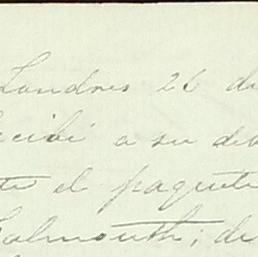 Londres 26 de
Recibí a su de
te el paquete
Falmouth; de